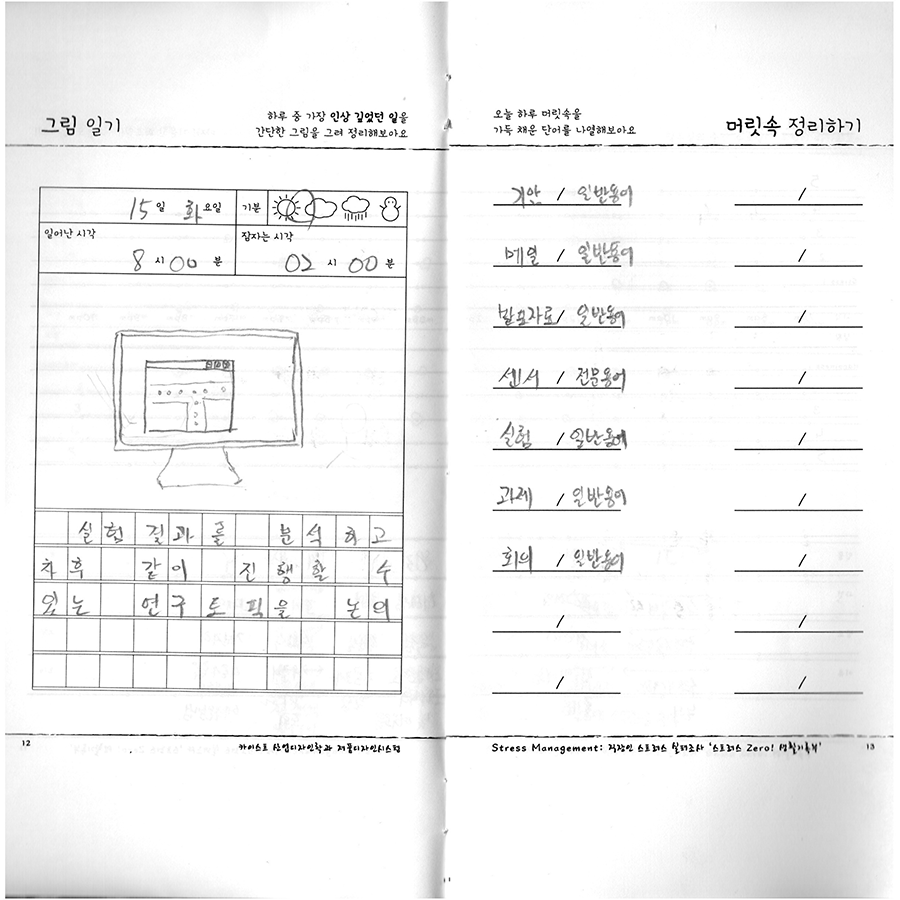 그림 일기
하루 중 가장 인상 깊었던 일을
간단한 그림을 그려 정리해보아요
15일 화요일 기분
일어난 시각 잠자는 시각
8시 00분 02시 00분
실험 결과를 분석하고
차후 같이 진행할 수
있는 연구토픽을 논의
12 카이스트 산업디자인학과 제품디자인시스템
오늘 하루 머릿속을
가득 채운 단어를 나열해보아요
머릿속 정리하기
기안 / 일반용어 /
메일 / 일반용어 /
발표자료 / 일반용어 /
센서 / 전문용어 /
실험 / 일반용어 /
과제 / 일반용어 /
회의 / 일반용어 /
/ /
/ /
Stress Management: 직장인 스트레스 실태조사 '스트레스 Zero! 생활기록부' 13